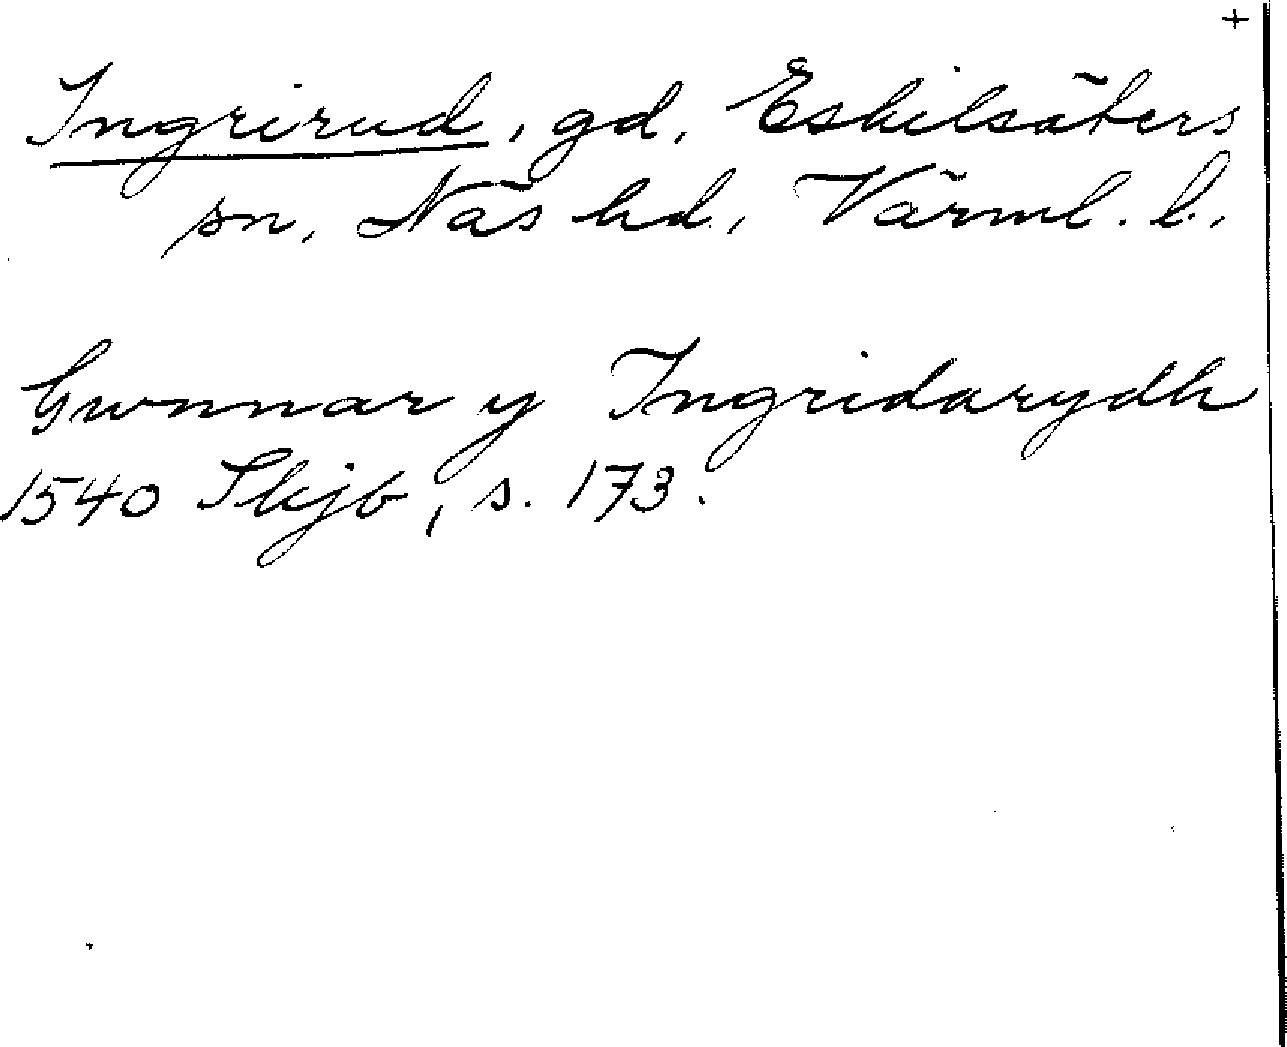 +
Ingrirud, gd, Eskilsäters
sn, Näs hd, Värml. l.
Gwnnar y Ingridarydh
1540 Skjb, s. 173.